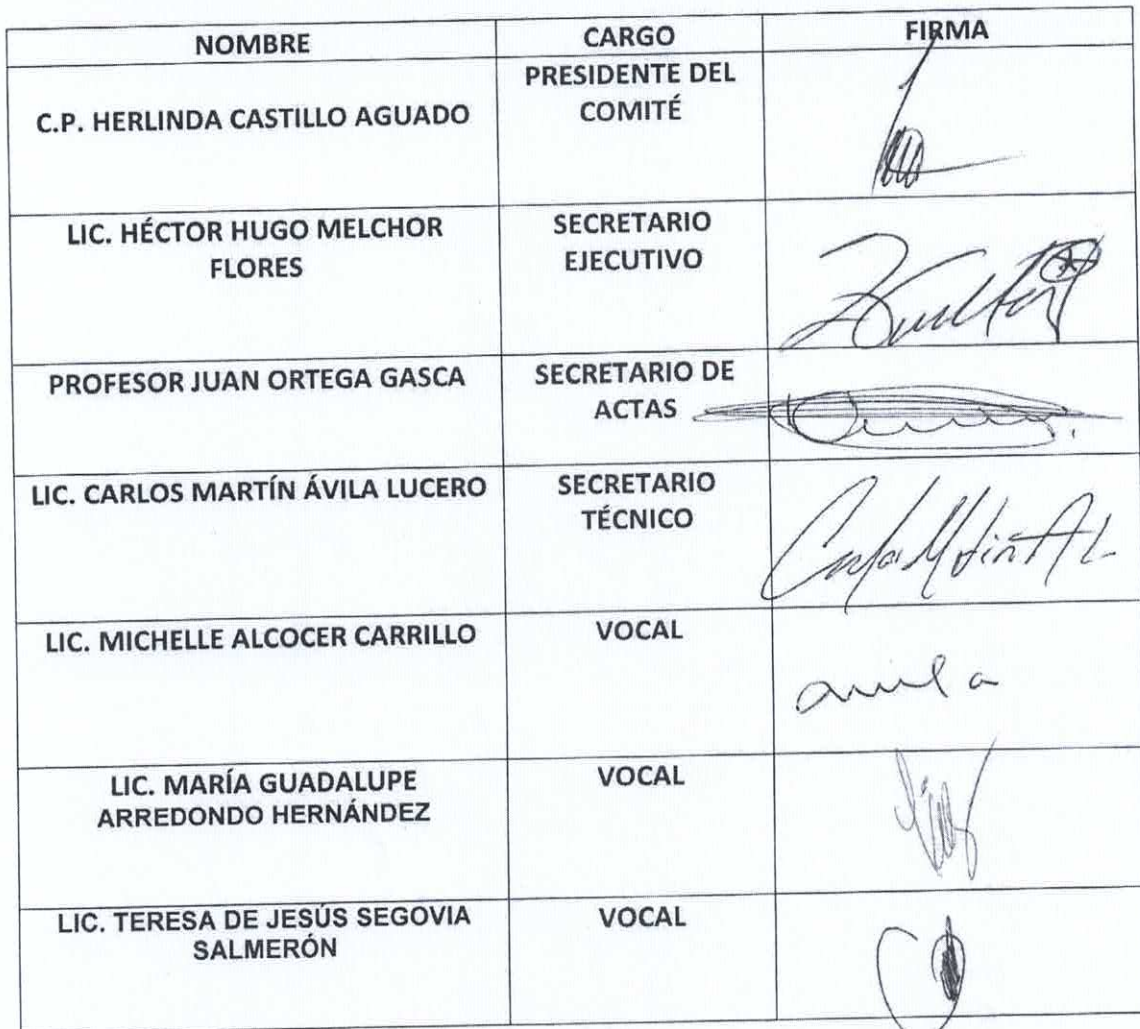 NOMBRE CARGO FIRMA
C.P. HERLINDA CASTILLO AGUADO
PRESIDENTE DEL
COMITÉ
LIC. HÉCTOR HUGO MELCHOR
FLORES
SECRETARIO
EJECUTIVO
PROFESOR JUAN ORTEGA GASCA
SECRETARIO DE
ACTAS
LIC. CARLOS MARTÍN ÁVILA LUCERO
SECRETARIO
TÉCNICO
LIC. MICHELLE ALCOCER CARRILLO
VOCAL
LIC. MARÍA GUADALUPE
ARREDONDO HERNÁNDEZ
VOCAL
LIC. TERESA DE JESÚS SEGOVIA
SALMERÓN
VOCAL